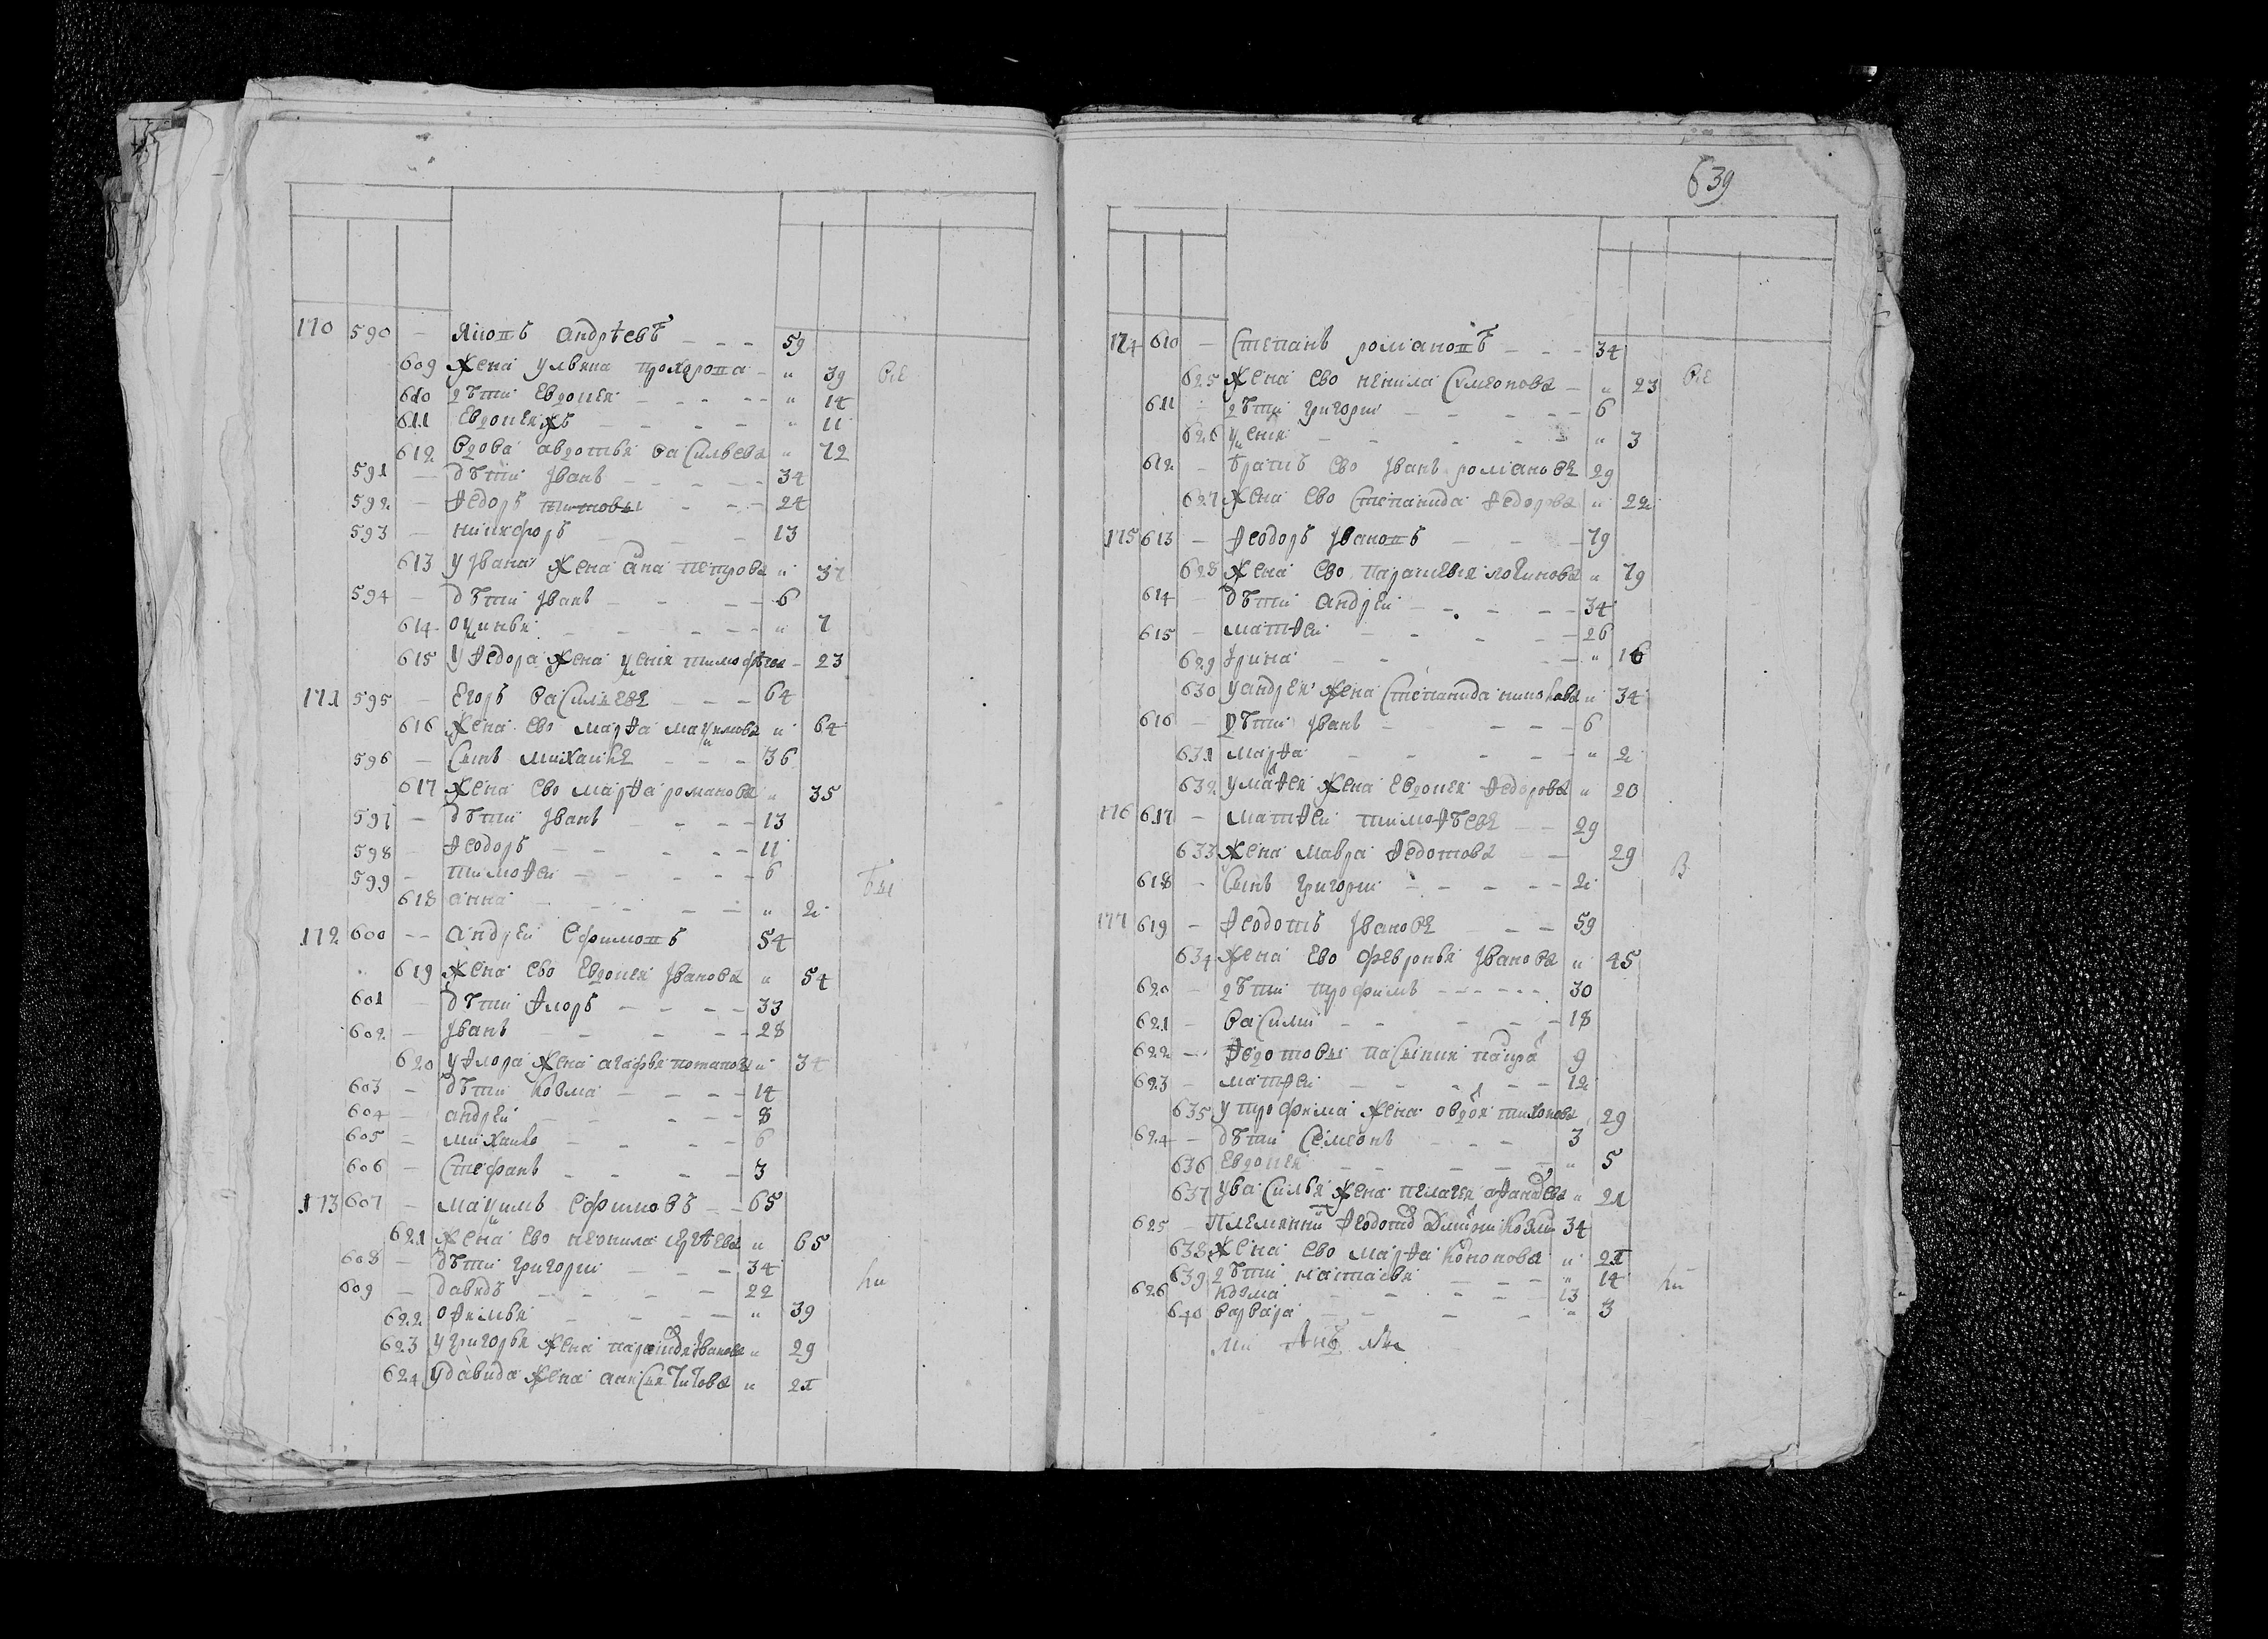 170 590 — Якопъ андрѣевъ — — — 59
609 жена улвяна прохорова — " 39 все
610 дѣти Евдокея — — — — " 14
611 Евдокеяжъ — — — — " 11
612 вдова авдотья васильева " 72
591 — дѣти Иванъ — — — — 34
592 — Ѳедоръ титовы — — — 24
593 — никифоръ — — 13
613 у Ивана жена ана петрова " 37
594 — дѣти Иванъ — — — — 6
614 — — — — " 7
615 У Ѳедора жена тимофѣева — 23
171 595 — Егоръ васильевъ — — — 64
616 жена ево марѳа максимова " 64
596 — сынъ михаила — — — 36
617 жена ево марѳа романова " 35
597 — дѣти Иванъ — — — — 13
598 — Ѳеодоръ — — — — 11
599 — тимоѳеи — — — — 6 бы
618 анна — — — — " 2
172 600 — андреи Ефимовъ 54
" 619 жена ево Евдокея Иванова " 54
601 — дѣти Ѳлоръ — — — — 33
602 — Иванъ — — — — 28
620 у Ѳлора жена агафья потапова " 34
603 — дѣти козма — — — — 14
604 — андреи — — — — 8
605 — михаило — — — — 6
606 — Стефанъ — — — — 3
173 607 — максимъ Ефимовъ — — 65
621 жена ево неонила " 65
608 — дѣти григореи — — — 34 ли
609 — давидъ — — — — 22
622 — — — — " 39
623 у григорья жена Иванова " 29
624 у давида жена титова " 21
639
174 610 — Степанъ романовъ — — — 34
625 жена ево ненила Симеонова — " 23 все
611 — дѣти григореи — — — — 6
626 — — — — " 3
612 — братъ ево Иванъ романовъ 29
627 жена ево Степанида Ѳедорова " 22
175 613 — Ѳеодоръ Ивановъ — — — 79
628 жена ево парасковья логинова " 79
614 — дѣти андреи — — — — 34
615 — матѳеи — — — — 26
629 Ирина — — — — " 16
630 у андрея жена Степанида " 34
616 — дѣти Иванъ — — — — 6
631 марѳа — — — — " 2
632 у матѳея жена Евдокея Ѳедорова " 20
176 617 — матѳеи тимоѳѣевъ — — 29
633 жена мавра Ѳедотова — — 29 в
618 — Сынъ григореи — — — — 2
177 619 — Ѳеодотъ Ивановъ — — 59
634 жена ево Февронья Иванова " 45
620 — дѣти трофимъ — — — — 30
621 — василеи — — — — 18
622 — Ѳедотовы пасынки 9
623 — матѳеи — — — — 12
635 у трофима жена авдотья тихонова 29
624 — дѣти Семеонъ — — — 3
636 Евдокея — — — — " 5
637 у василья жена пелагея " 21
625 — Племянникъ 34
638 жена ево марѳа кононова " 21
639 дѣти настасья — — — " 14 ли
626 козма — — — — 13
640 варвара — — — — " 3